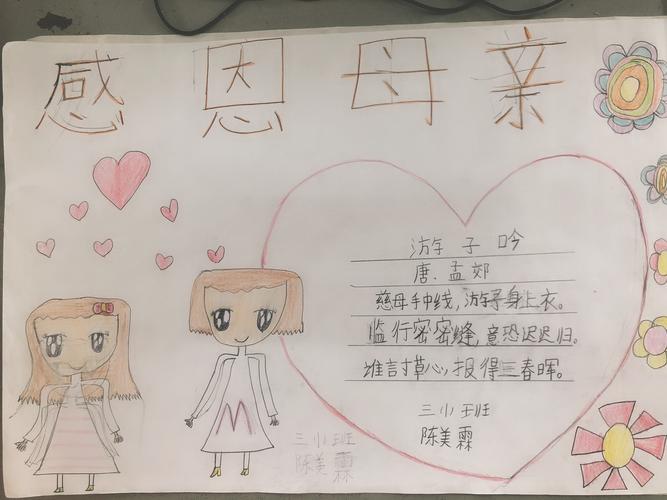 感恩母亲
游子吟
唐.孟郊
慈母手中线,游子身上衣。
监行密密缝,意恐迟迟归。
谁言寸草心,报得三春晖。
三小班
陈美霖
三小班
陈美霖